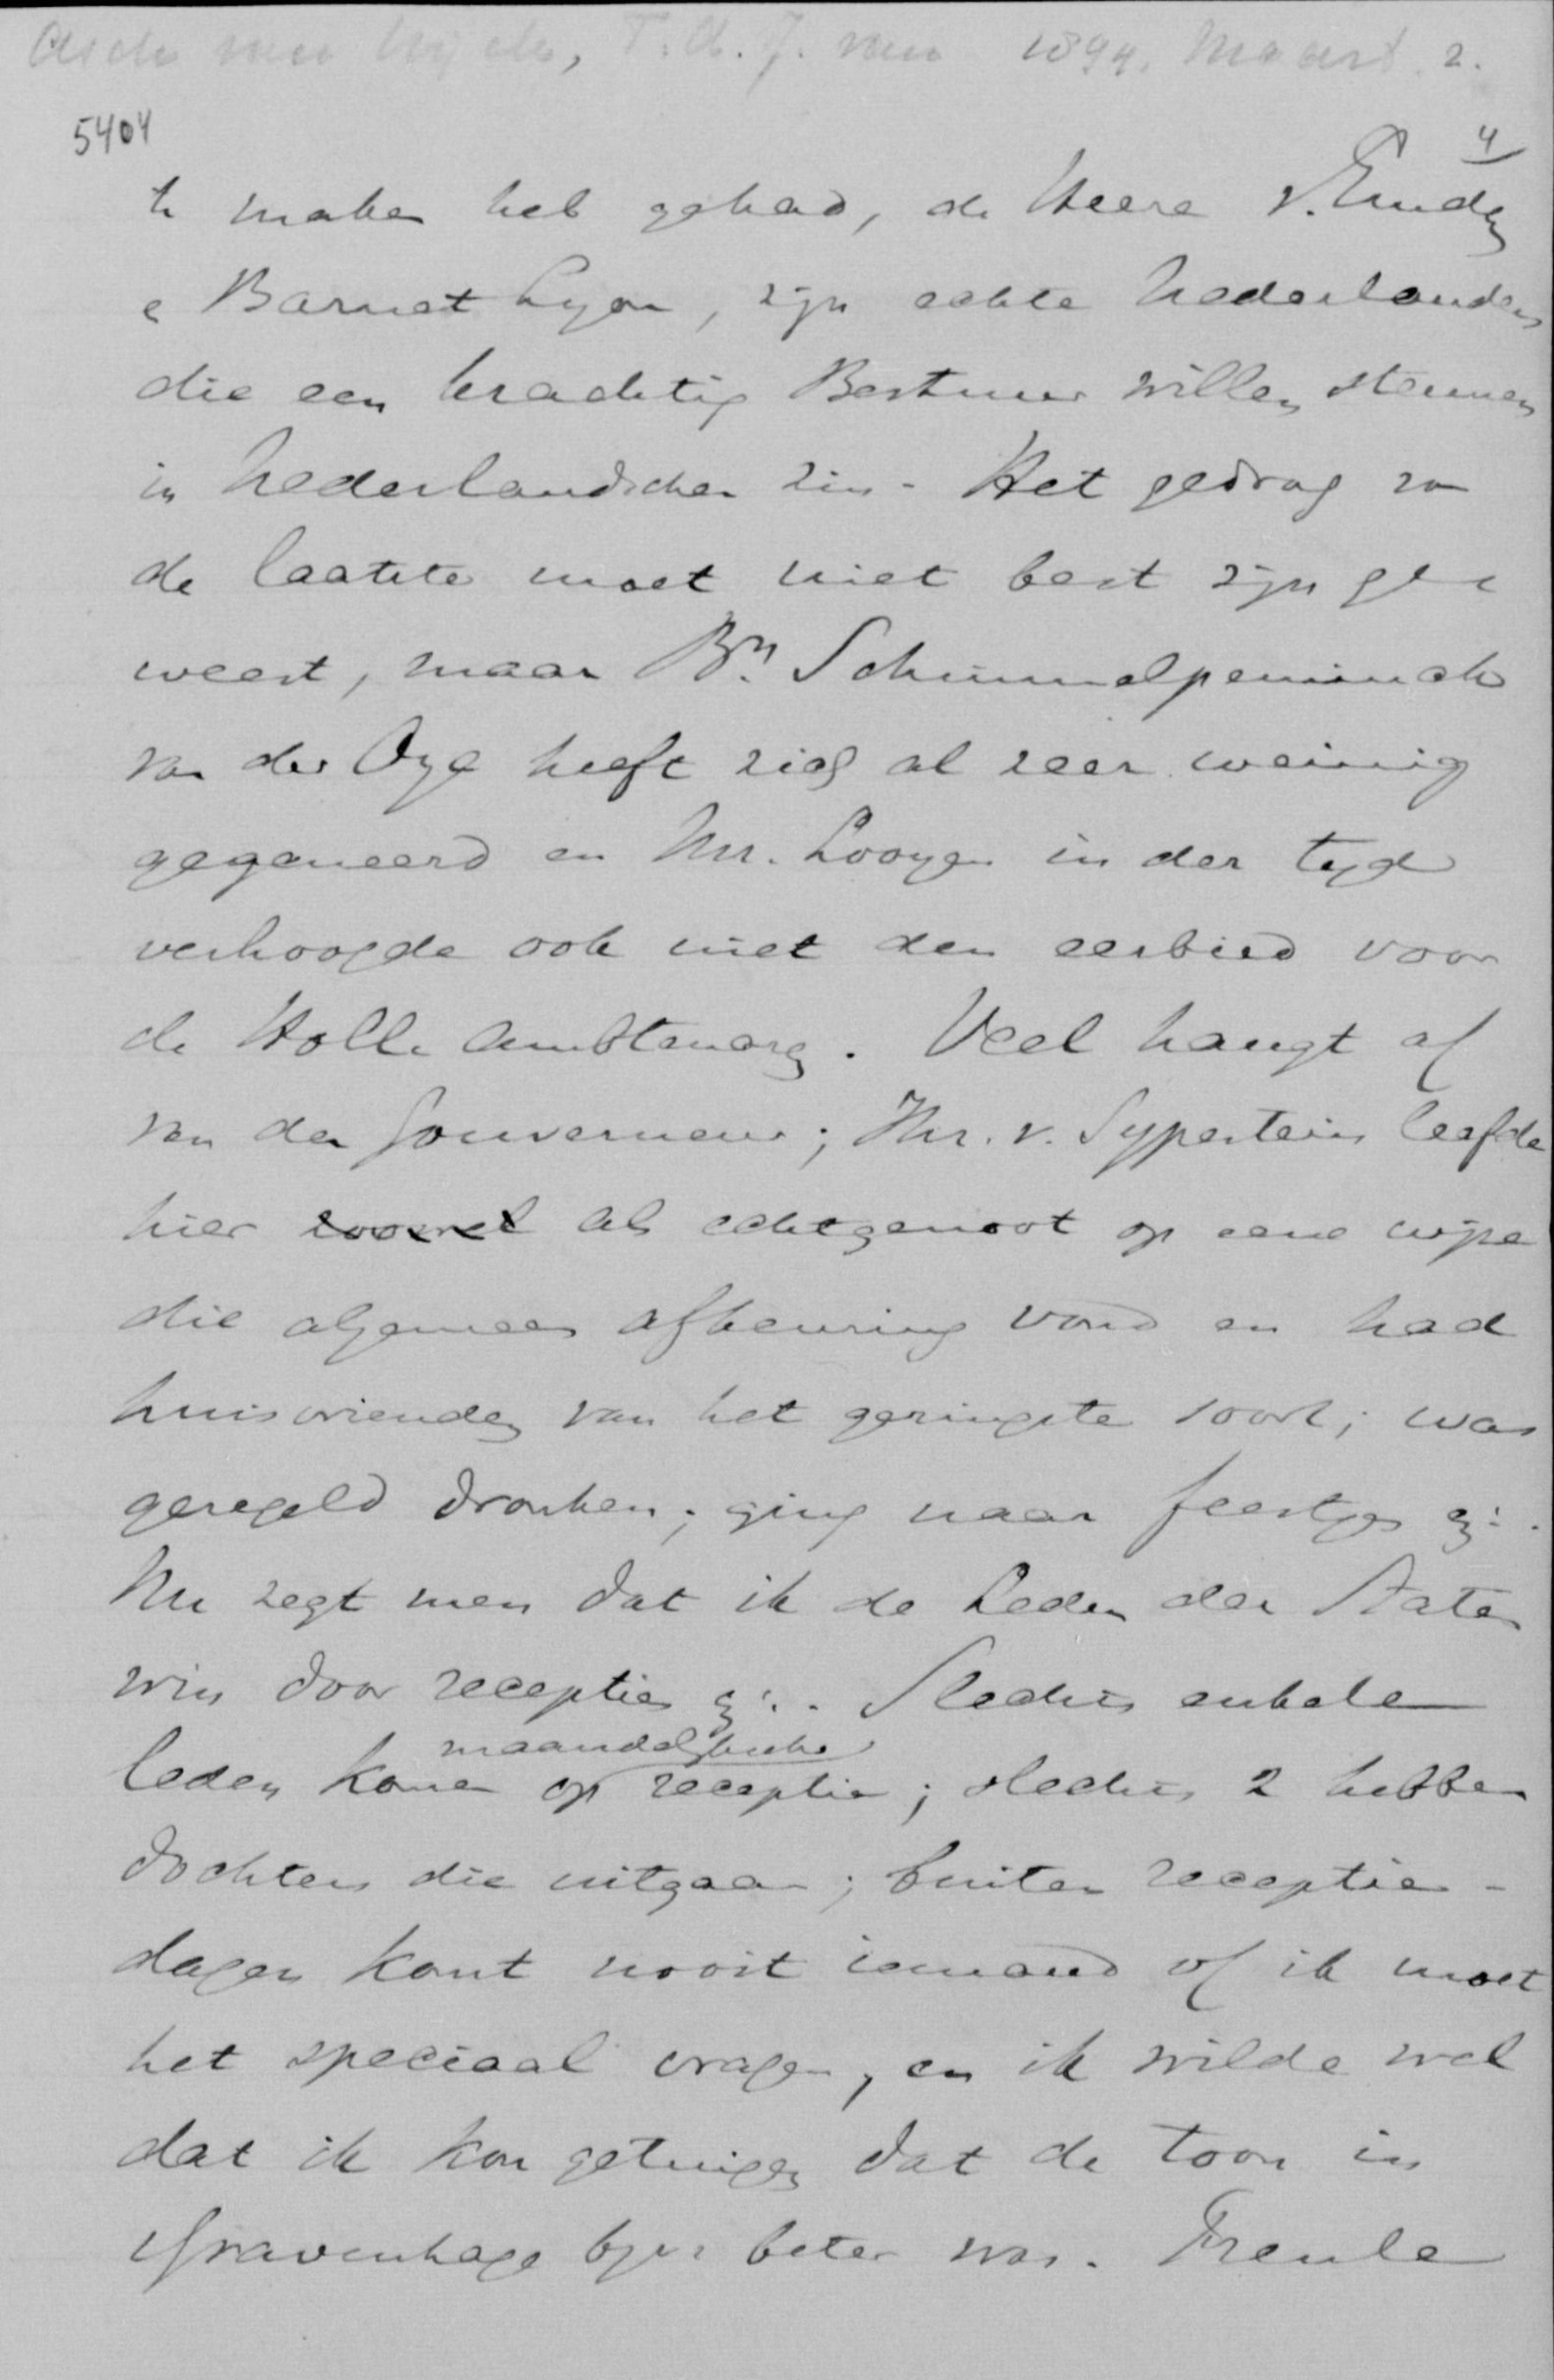 Asch van Wijck, T. A. J. van 1894, Maart 2.
5404
4
te maken heb gehad, de Heere v. Emden
e Barnet Lyon, zijn echte Nederlanders
die een krachtig Bestuur willen steunen
in Nederlandschen zin. Het gedrag van
de laatste moet niet best zijn ge=
weest, maar Bn. Schimmelpenninck
van der Oye heeft zich al zeer weinig
gegeneerd en Mr. Looyen in der tijd
verhoogde ook niet den eerbied voor
de Holl. ambtenaren. Veel hangt af
van den Gouverneur; Jhr. v. Sypesteijn leefde
hier zoowel als echtgenoot op eene wijze
die algemeen afkeuring vond en had
huisvrienden van het geringste soort; was
geregeld dronken; ging naar feestjes enz:.
Nu zegt men dat ik de Leden der Staten
win door recepties enz:. Slechts enkele
maandelijksche
leden komen op receptie; slechts 2 hebben
dochters die uitgaan; buiten receptie-
dagen komt nooit iemand of ik moet
het speciaal vragen, en ik wilde wel
dat ik kon getuigen dat de toon in
's Gravenhage bijv. beter was. Freule